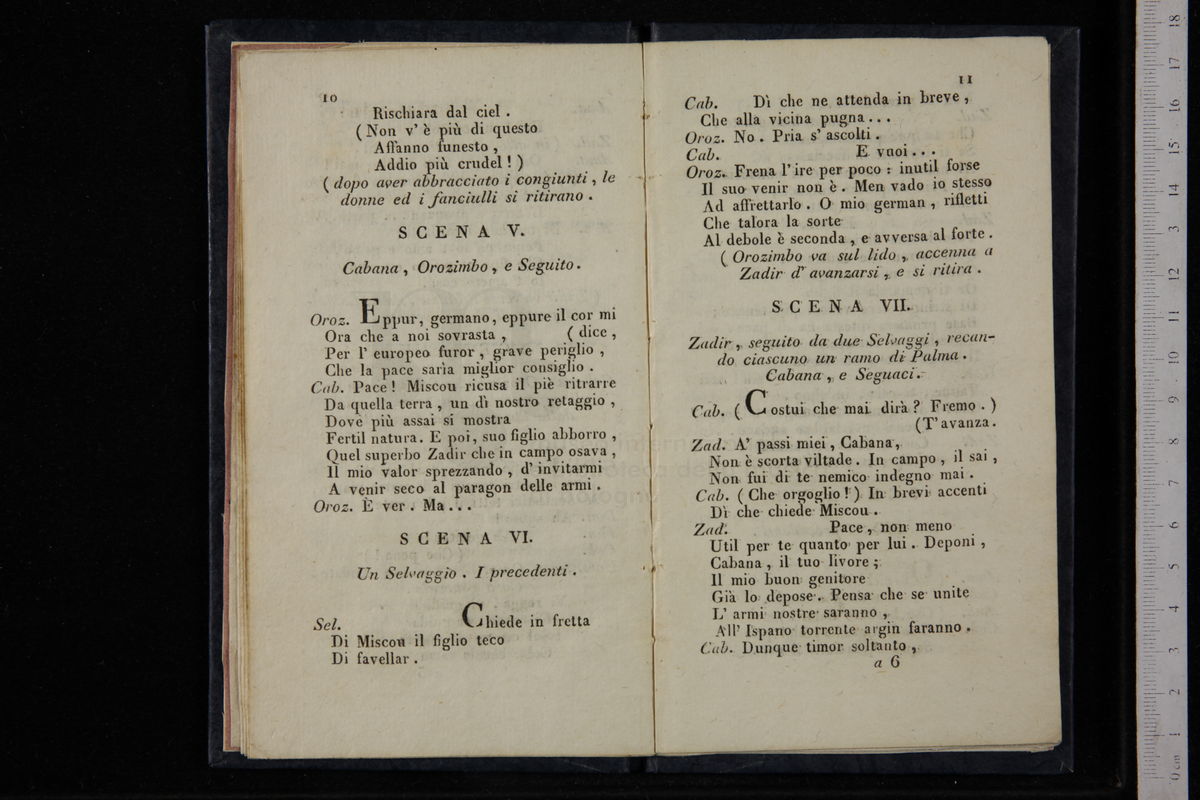 10
Rischiara dal ciel .
( Non v' è più di questo
Affanno funesto ,
Addio più crudel ! )
( dopo aver abbracciato i congiunti , le
donne ed i fanciulli si ritirano .
SCENA V.
Cabana , Orozimbo , e Seguito .
Oroz. Eppur, germano, eppure il cor mi
Ora che a noi sovrasta , ( dice ,
Per l' europeo furor , grave periglio ,
Che la pace saria miglior consiglio .
Cab. Pace ! Miscou ricusa il piè ritrarre
Da quella terra , un dì nostro retaggio ,
Dove più assai si mostra
Fertil natura. E poi, suo figlio abborro ,
Quel superbo Zadir che in campo osava ,
Il mio valor sprezzando , d' invitarmi
A venir seco al paragon delle armi .
Oroz. È ver . Ma . . .
SCENA VI.
Un Selvaggio . I precedenti .
Sel. Chiede in fretta
Di Miscou il figlio teco
Di favellar .
11
Cab. Dì che ne attenda in breve ,
Che alla vicina pugna . . .
Oroz. No . Pria s' ascolti .
Cab. E vuoi . . .
Oroz. Frena l' ire per poco : inutil forse
Il suo venir non è . Men vado io stesso
Ad affrettarlo . O mio german , rifletti
Che talora la sorte
Al debole è seconda , e avversa al forte .
( Orozimbo va sul lido , accenna a
Zadir d' avanzarsi , e si ritira .
SCENA VII.
Zadir , seguito da due Selvaggi , recan-
do ciascuno un ramo di Palma .
Cabana , e Seguaci .
Cab. ( Costui che mai dirà ? Fremo . )
(T' avanza.
Zad. A' passi miei , Cabana ,
Non è scorta viltade . In campo , il sai ,
Non fui di te nemico indegno mai .
Cab. ( Che orgoglio ! ) In brevi accenti
Dì che chiede Miscou .
Zad. Pace , non meno
Util per te quanto per lui . Deponi ,
Cabana , il tuo livore ;
Il mio buon genitore
Già lo depose . Pensa che se unite
L' armi nostre saranno ,
All' Ispano torrente argin faranno .
Cab. Dunque timor soltanto ,
a 6
0 cm 1 2 3 4 5 6 7 8 9 10 11 12 13 14 15 16 17 18